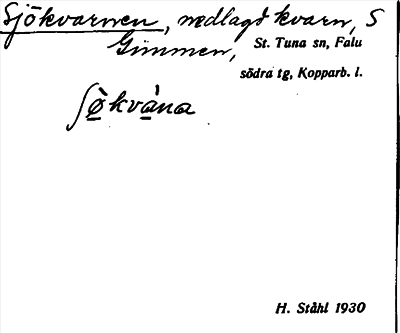 Sjökvarnen, nedlagd kvarn, S
Gimmen, St. Tuna sn, Falu
södra tg, Kopparb. l.
ʃö̀kvàna
H. Ståhl 1930